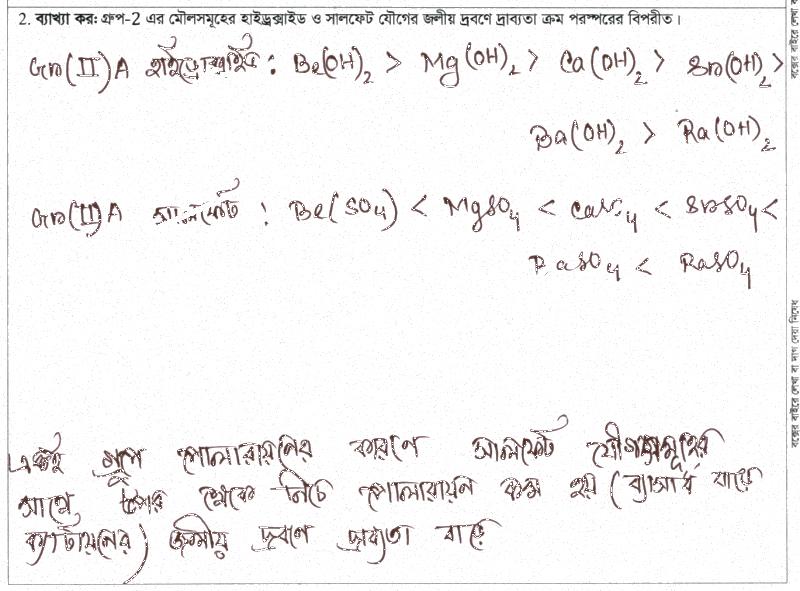 2. ব্যাখ্যা কর: গ্রুপ-2 এর মৌলসমূহের হাইড্রক্সাইড ও সালফেট যৌগের জলীয় দ্রবণে দ্রাব্যতা ক্রম পরস্পরের বিপরীত।
Gr(II)A হাইড্রোক্সাইড : Be(OH)₂ > Mg(OH)₂ > Ca(OH)₂ > Sr(OH)₂ >
Ba(OH)₂ > Ra(OH)₂
Gr(II)A সালফেট : Be(SO₄) < MgSO₄ < CaSO₄ < SrSO₄ <
BaSO₄ < RaSO₄
একই গ্রুপে পোলারায়নের কারণে সালফেট যৌগসমূহের
সাথে উপর থেকে নিচে পোলারায়ন কম হয় (ব্যাসার্ধ বাড়ে
ক্যাটায়নের) জলীয় দ্রবণে দ্রাব্যতা বাড়ে
বক্সের বাইরে লেখা বা দাগ দেয়া নিষেধ
বক্সের বাইরে লেখা ব